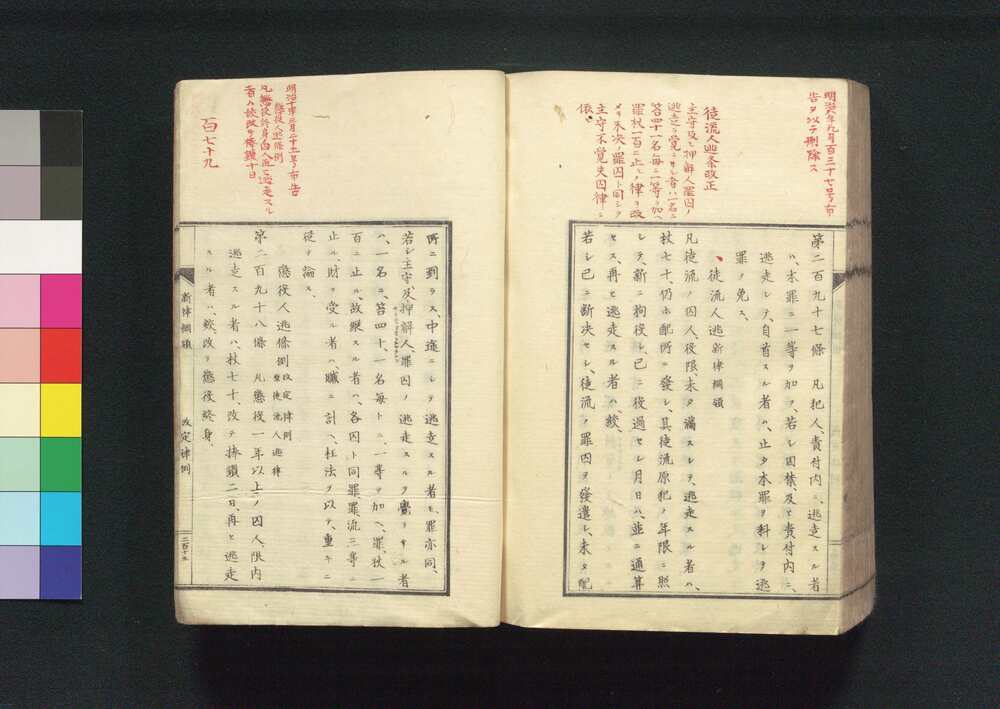 明治六年九月百三十七号布
告ヲ以テ刪除ス
徒流人逃条改正
主守及ヒ押解人罪囚ノ
逃走ヲ覚ニサレ者ハ一名ニ
笞四十一名毎ニ一等ヲ加ヘ
罪杖一百ニ止ルノ律ヲ改
メテ未決ノ罪囚ト同シク
主守不覚失囚律ニ
依ル
第二百九十七條 凡犯人、責付内ニ、逃走スル者
ハ、本罪ニ一等ヲ加フ、若シ囚禁及ヒ責付内ニ、
逃走シテ、自首スル者ハ、止タ本罪ヲ科シテ逃
罪ヲ免ス、
徒流人逃 新律綱領
凡徒流ノ囚人、役限、未タ満スシテ、逃走スル者ハ、
杖七十、仍ホ配所ニ發シ、其徒流原犯ノ年限ニ照
シテ、新ニ拘役シ、已ニ役過セシ月日ハ、並ニ通算
セス、再ヒ逃走スル者ハ、絞、
若シ已ニ断決セシ、徒流ノ罪囚ヲ發遣シ、未タ配
所ニ到ラス、中途ニシテ逃走スル者モ、罪亦同、
若シ主守及押解人、罪囚ノ逃走スルヲ覺ラサル者
ハ、一名ニ、笞四十、一名毎トニ、一等ヲ加ヘ、罪、杖一
百ニ止ル、故縱スル者ハ、各囚ト同罪、罪流三等ニ
止ル、財ヲ受ル者ハ、贓ニ計ヘ、枉法ヲ以テ、重キニ
從テ論ス、
懲役人逃條例 改定律例 舊徒流人逃律
第二百九十八條 凡懲役一年以上ノ囚人、限内
逃走スル者ハ、杖七十、改テ棒鎖二日、再ヒ逃走
スル者ハ、絞、改テ懲役終身、
明治十年三月二十二号布告
懲役人逃條例
百七十九
新律綱領
改定律例
二百十五